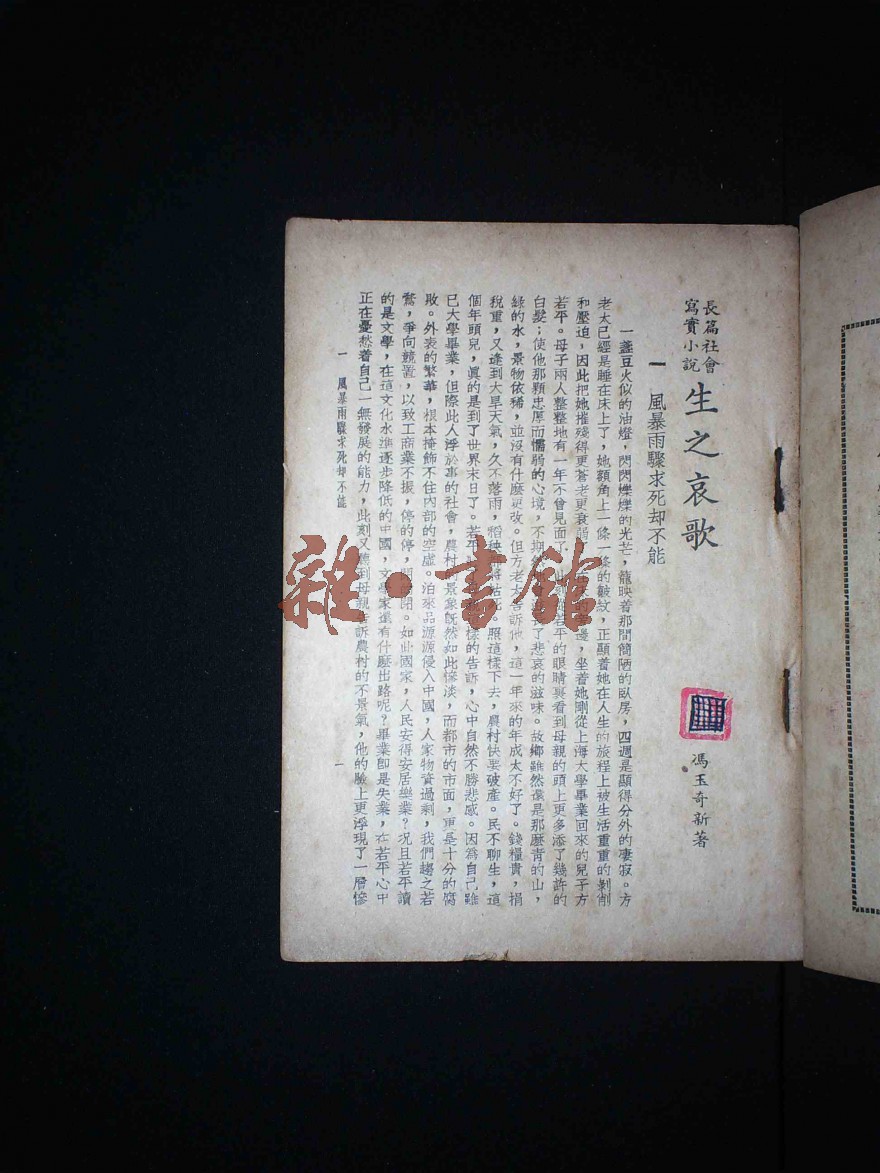 長篇社會
寫實小說
生之哀歌
馮玉奇新著
一 風暴雨驟求死却不能
一盞豆火似的油燈，閃閃爍爍的光芒，籠映着那間簡陋的臥房，四週是顯得分外的凄寂。方
老太已經是睡在床上了，她額角上一條一條的皺紋，正顯着她在人生的旅程上被生活重重的剝削
和壓迫，因此把她摧殘得更蒼老更衰弱 邊，坐着她剛從上海大學畢業回來的兒子方
若平。母子兩人整整地有一年不曾見面了 若平的眼睛裏看到母親的頭上更多添了幾許的
白髮；使他那顆忠厚而懦弱的心境，不期 了悲哀的滋味。故鄉雖然還是那麽青的山，
綠的水，景物依稀，並沒有什麽更改。但方老太告訴他，這一年來的年成太不好了。錢糧貴，捐
稅重，又逢到大旱天氣，久不落雨，稻秧 將枯死。照這樣下去，農村快要破產。民不聊生，這
個年頭兒，眞的是到了世界末日了。若平 樣的告訴，心中自然不勝悲感。因爲自己雖
已大學畢業，但際此人浮於事的社會，農村 景象旣然如此慘淡，而都市的市面，更是十分的腐
敗。外表的繁華，根本掩飾不住內部的空虛。泊來品源源侵入中國，人家物資過剩，我們趨之若
鶩，爭向競置，以致工商業不振，停的停， 閉。如此國家，人民安得安居樂業？况且若平讀
的是文學，在這文化水準逐步降低的中國，文學家還有什麽出路呢？畢業卽是失業，在若平心中
正在憂愁着自己一無發展的能力，此刻又聽到母親告訴農村的不景氣，他的臉上更浮現了一層慘
一 風暴雨驟求死却不能
一
雜·書館